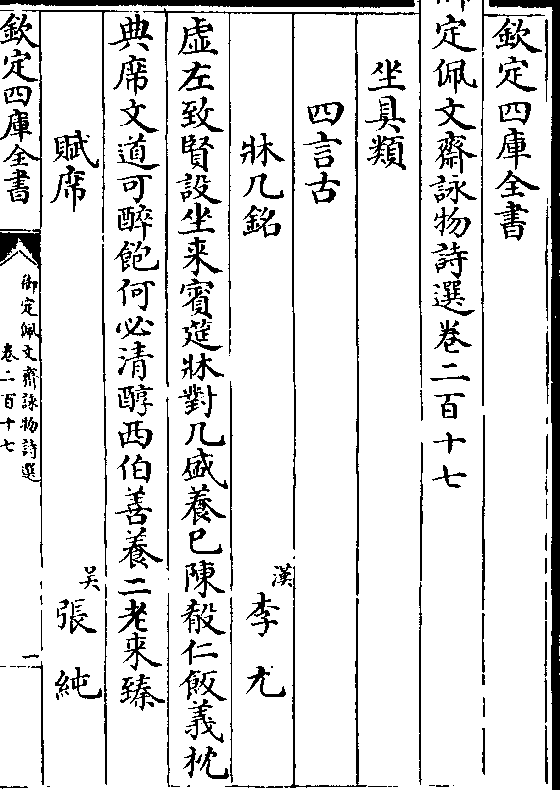 欽定四庫全書
御定佩文齋詠物詩選卷二百十七
坐具類
四言古
牀几銘 漢 李尤
虚左致賢設坐来賓筵牀對几盛養已陳殽仁飯義枕
典席文道可醉飽何必清醇西伯善養二老来臻
賦席 吴 張純
欽定四庫全書
御定佩文齋詠物詩選
卷二百十七
一